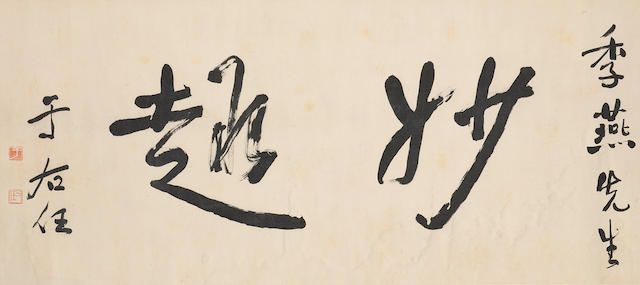 季燕先生
妙趣
于右任